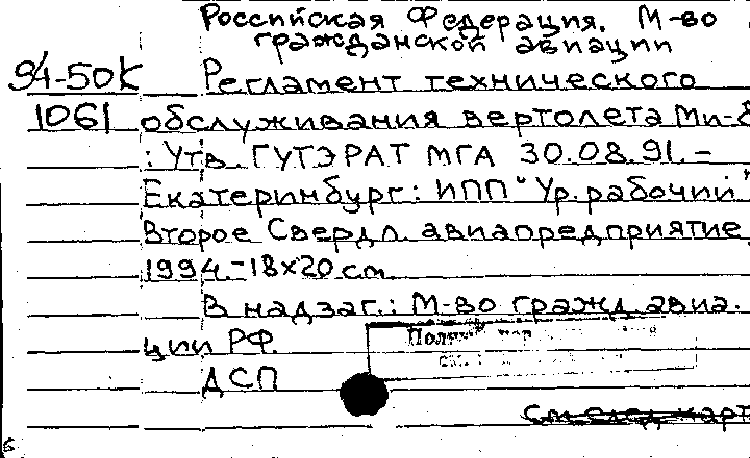 Российская Федерация. М-во
гражданской авиации
94-50К Регламент технического
1061 обслуживания вертолета Ми-8
: Утв. ГУГЭРАТ МГА 30.08.91.–
Екатеринбург: ИПП "Ур. рабочий"
Второе Свердл. авиапредприятие,
1994.-18х20 см.
В надзаг.: М-во гражд. авиа-
ции РФ.
ДСП
См след карт